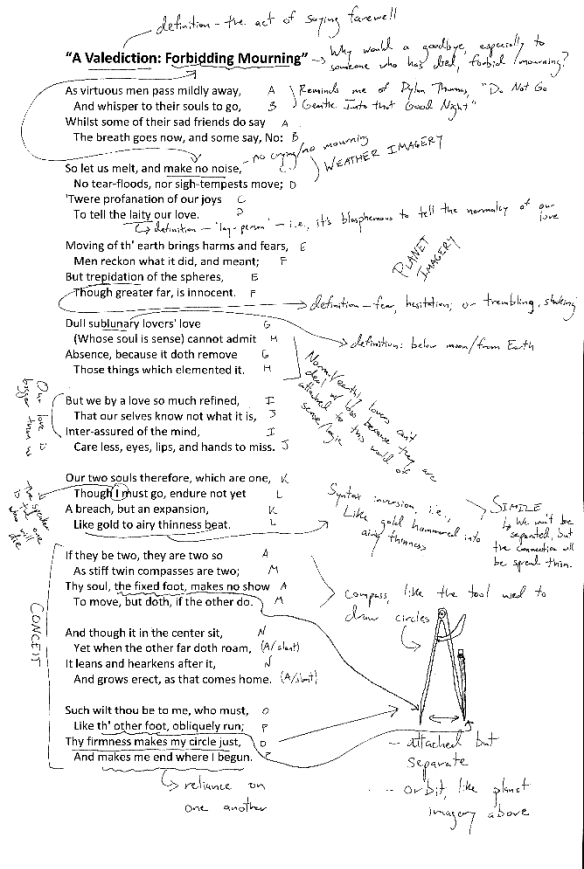 definition - the act of saying farewell
"A Valediction: Forbidding Mourning"
Why would a goodbye, especially to
someone who has died, forbid mourning?
As virtuous men pass mildly away, A
And whisper to their souls to go, B
Whilst some of their sad friends do say A
The breath goes now, and some say, No: B
Reminds me of Dylan Thomas, "Do Not Go
Gentle Into that Good Night"
So let us melt, and make no noise, C
No tear-floods, nor sigh-tempests move; D
'Twere profanation of our joys C
To tell the laity our love. D
no crying/no mourning
WEATHER IMAGERY
definition - "lay-person" - i.e., it's blasphemous to tell the normalcy of our
love
Moving of th' earth brings harms and fears, E
Men reckon what it did, and meant; F
But trepidation of the spheres, E
Though greater far, is innocent. F
PLANET
IMAGERY
definition - fear, hesitation; or trembling, shaking
Dull sublunary lovers' love G
(Whose soul is sense) cannot admit H
Absence, because it doth remove G
Those things which elemented it. H
definition: below moon/from Earth
Normal/earthly lovers can't
deal w/ loss because they are
attached to this world of
sense/logic
But we by a love so much refined, I
That our selves know not what it is, J
Inter-assured of the mind, I
Care less, eyes, lips, and hands to miss. J
Our love is
bigger than us
Our two souls therefore, which are one, K
Though I must go, endure not yet L
A breach, but an expansion, K
Like gold to airy thinness beat. L
the speaker
is the one
who will
die
Syntax inversion, i.e.,
Like gold hammered into
airy thinness
SIMILE
We won't be
separated, but
the connection will
be spread thin.
If they be two, they are two so A
As stiff twin compasses are two; M
Thy soul, the fixed foot, makes no show A
To move, but doth, if the other do. M
compass, like the tool used to
draw circles
CONCEIT
And though it in the center sit, N
Yet when the other far doth roam, (A/slant)
It leans and hearkens after it, N
And grows erect, as that comes home. (A/slant)
Such wilt thou be to me, who must, O
Like th' other foot, obliquely run; P
Thy firmness makes my circle just, O
And makes me end where I begun. P
reliance on
one another
-- attached but
separate
-- orbit, like planet
imagery above